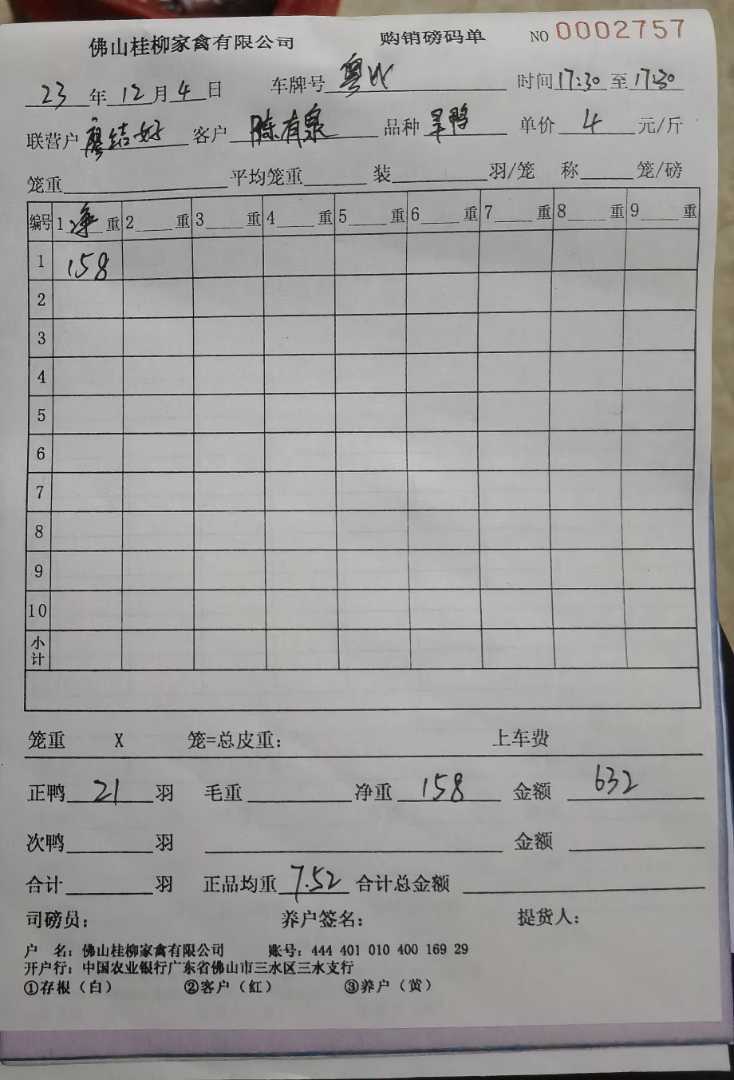 佛山桂柳家禽有限公司 购销磅码单 NO 0002757
23 年 12 月 4 日 车牌号 粤 时间 17:30 至 17:30
联营户 廖结好 客户 陈有泉 品种 旱鸭 单价 4 元/斤
笼重 平均笼重 装 羽/笼 称 笼/磅
编号 1 净 重 2 重 3 重 4 重 5 重 6 重 7 重 8 重 9 重
1 158
2
3
4
5
6
7
8
9
10
小计
笼重 X 笼=总皮重: 上车费
正鸭 21 羽 毛重 净重 158 金额 632
次鸭 羽 金额
合计 羽 正品均重 7.52 合计总金额
司磅员: 养户签名: 提货人:
户 名: 佛山桂柳家禽有限公司 账号: 444 401 010 400 169 29
开户行: 中国农业银行广东省佛山市三水区三水支行
①存根(白) ②客户(红) ③养户(黄)